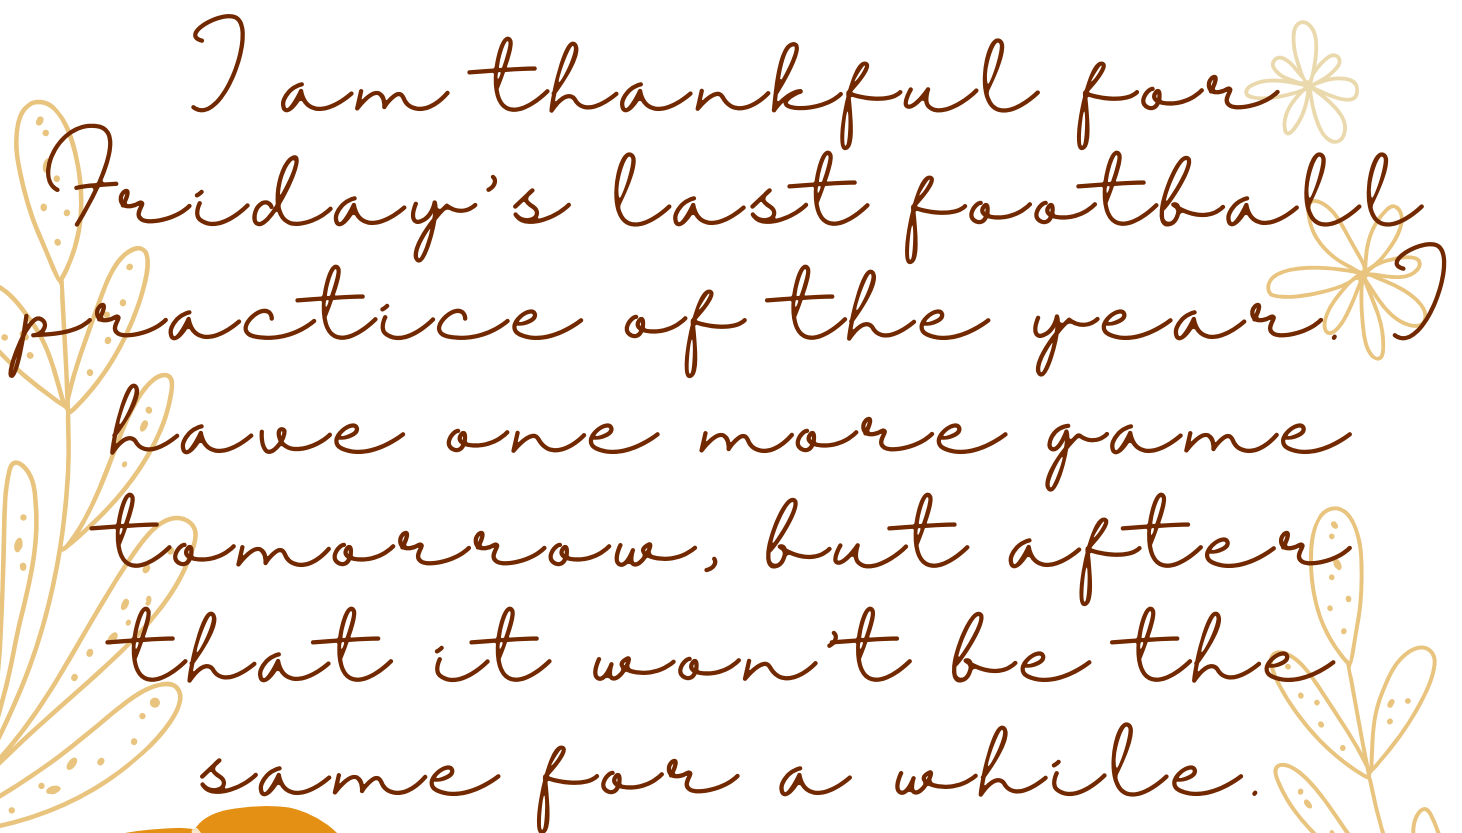 I am thankful for
Friday's last football
practice of the year. I
have one more game
tomorrow, but after
that it won't be the
same for a while.